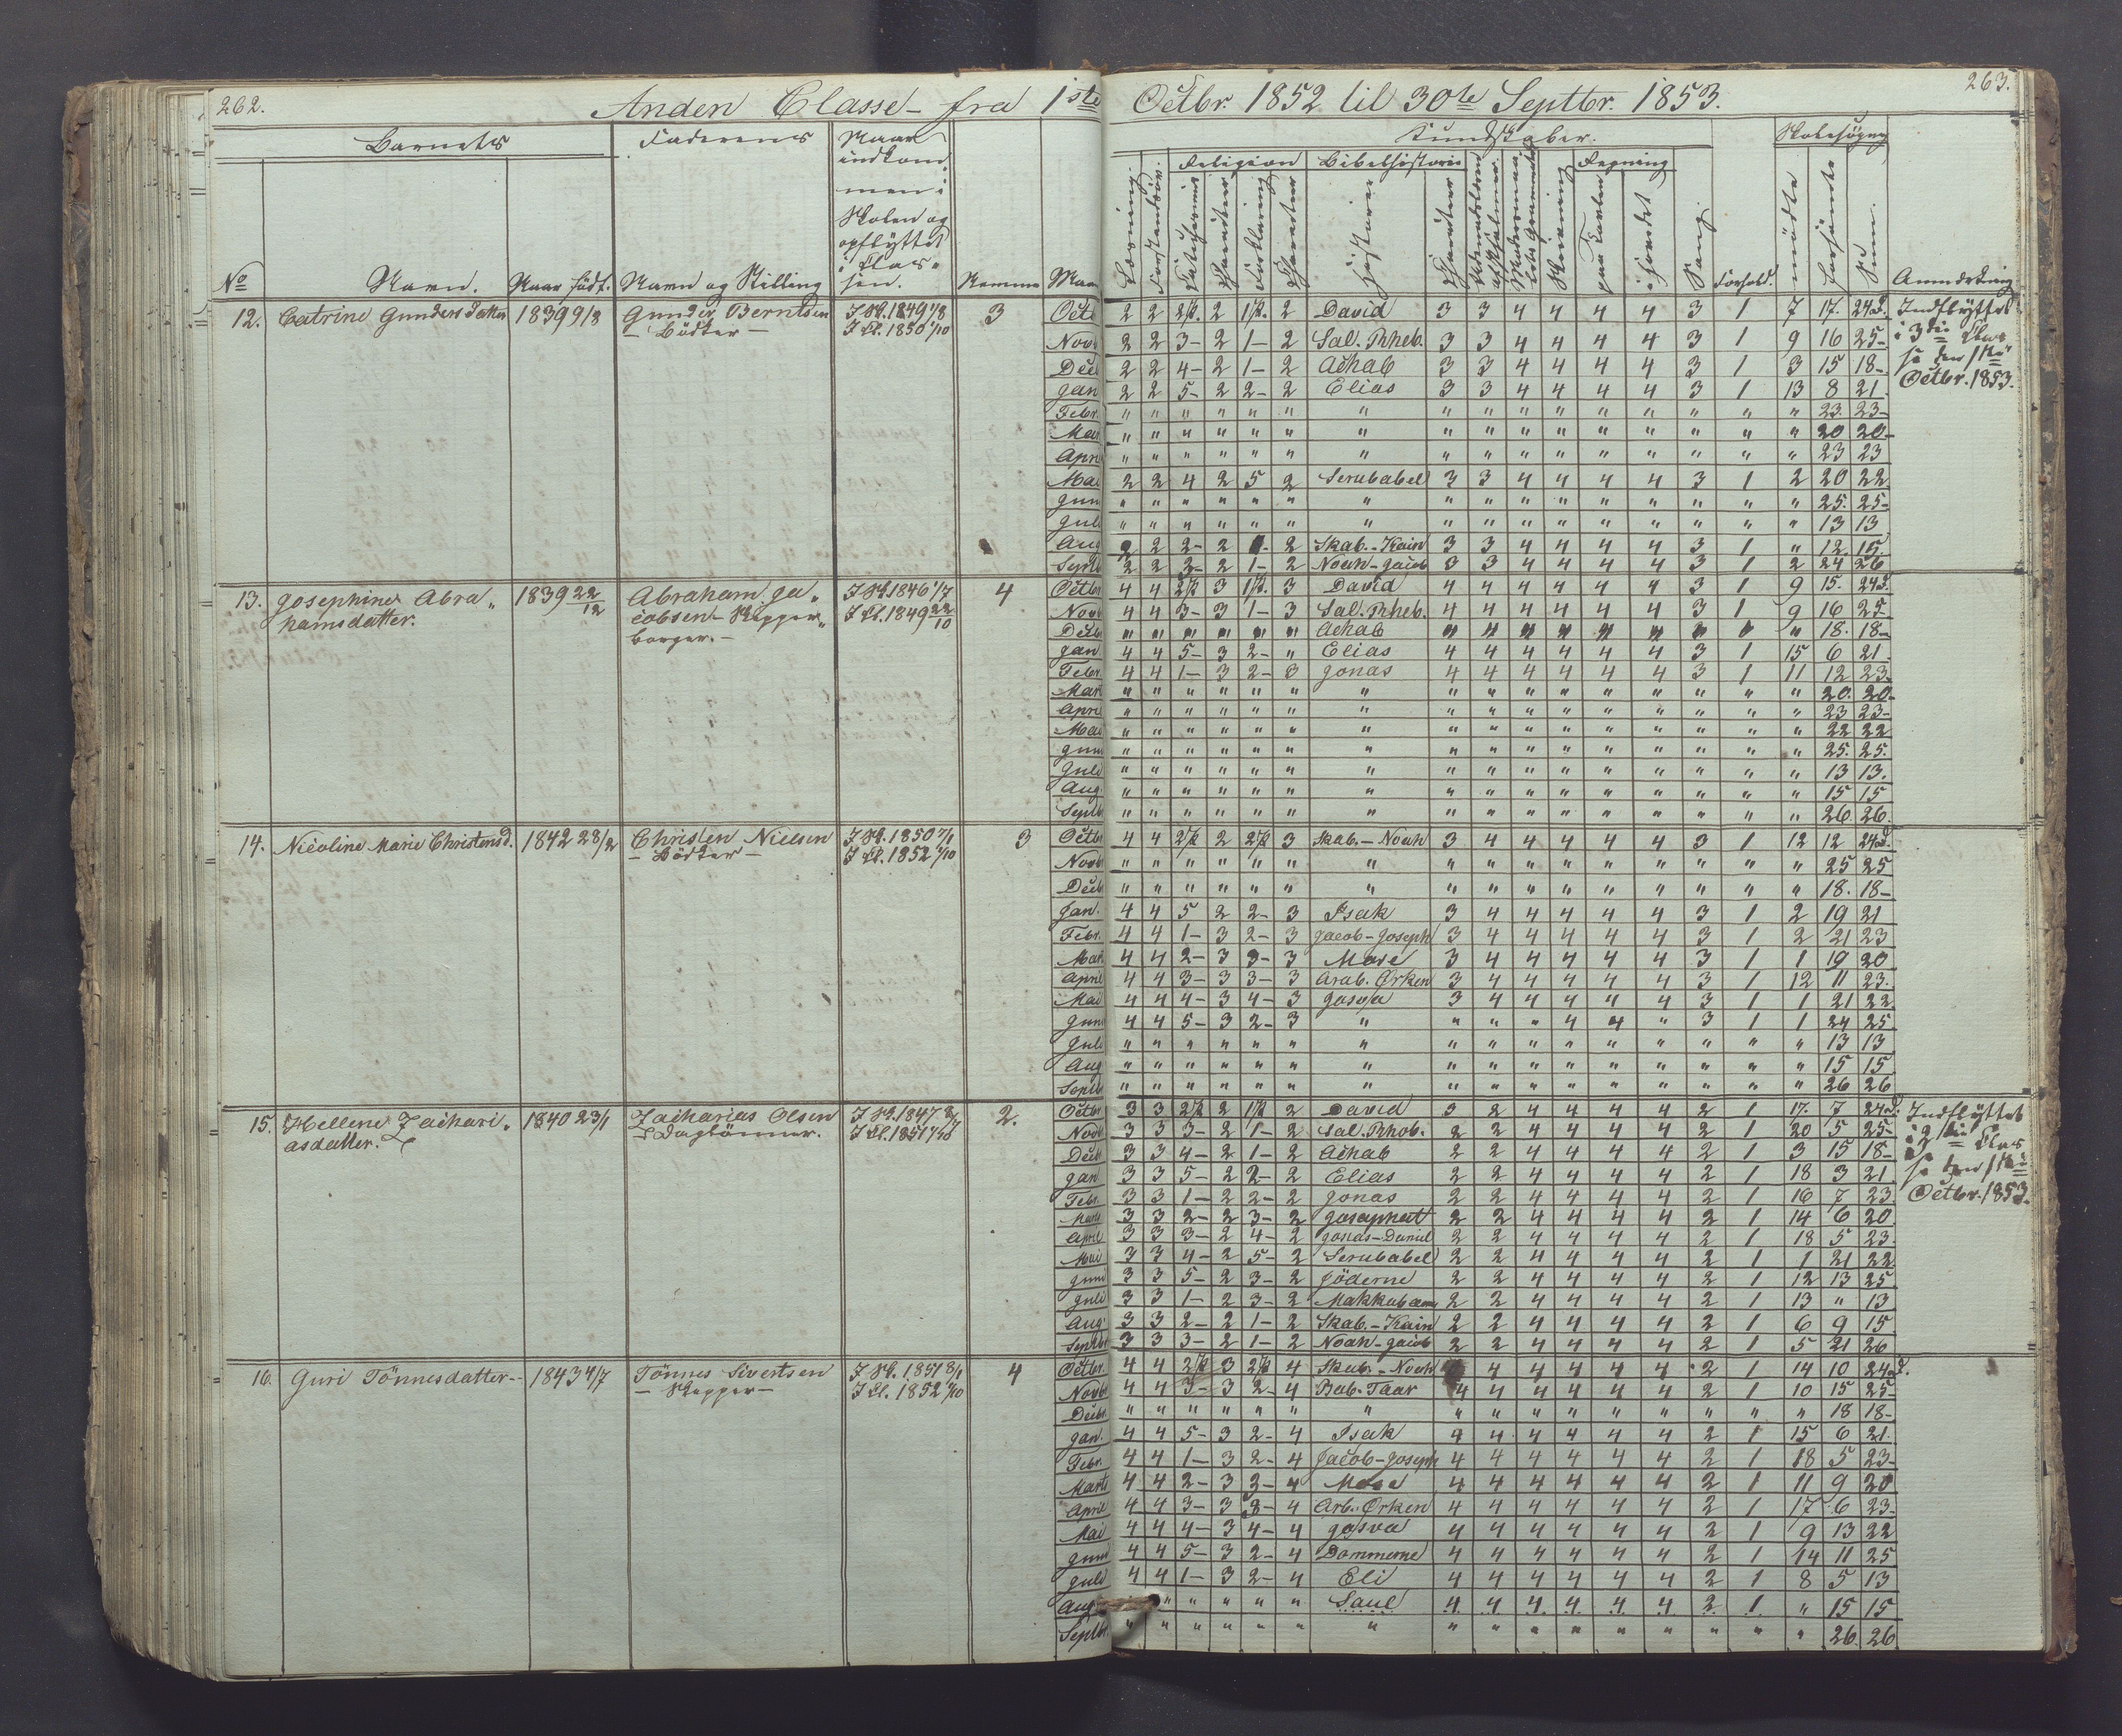 262.
Anden Classe - fra 1ste Octbr. 1852 til 30te Septbr. 1853.
263.
Barnets Faderens Naar indkommen i Skolen og opflyttet i Classen.
Kundskaber. Skolesøgning
Religion Bibelhistorie Regning
No Navn. Naar født. Navn og Stilling Nemme Maaned
Læsning. Forstandsøv. Catechismus Charakter Forklaring Charakter Historier Charakter Skrivning paa Tavlen i Hovedet Sang. Forhold. mødte forsømte Sum. Anmærkning
12. Catrine Gundersdatter 1839 9/8 Gunder Berntsen I Sk. 1849 1/8 3 Octbr 2 2 2 P. 2 1 P. 2 David 3 3 4 4 4 4 3 1 7 17. 24 d. Indflyttet
- Bødker - I Cl. 1850 1/10 Novb 2 2 3- 2 1- 2 Sal. Rheb. 3 3 4 4 4 4 3 1 9 16 25- i 3die Clas
Decb 2 2 4- 2 1- 2 Achab 3 3 4 4 4 4 3 1 3 15 18- se den 1ste
Jan 2 2 5- 2 2- 2 Elias 3 3 4 4 4 4 3 1 13 8 21 Octbr. 1853.
Febr. " " " " " " " " " " " " " " " " 23. 23-
Mar " " " " " " " " " " " " " " " " 20 20-
Apri " " " " " " " " " " " " " " " " 23 23
Mai 2 2 4 2 5 2 Serubabel 3 3 4 4 4 4 3 1 2 20 22
Juni " " " " " " " " " " " " " " " " 25. 25-
Juli " " " " " " " " " " " " " " " " 13 13
Aug 2 2 2- 2 1- 2 Skab. - Kain 3 3 4 4 4 4 3 1 " 12 15.
Septb 2 2 3- 2 1- 2 Noah - Jacob 3 3 4 4 4 4 3 1 2 24 26
13. Josephine Abra- 1839 22/12 Abraham Ja- I Sk. 1846 1/7 4 Octbr 4 4 2 P 3 1 P. 3 David 4 4 4 4 4 4 4 1 9 15. 24 d.
hamsdatter. cobsen - Skipper- I Cl. 1849 22/10 Novb 4 4 3- 3 1- 3 Sal. Rheb. 4 4 4 4 4 4 3 1 9 16 25-
borger. - Decb " " " " " " Achab " " " " " " " " " 18. 18-
Jan 4 4 5- 3 2- " Elias 4 4 4 4 4 4 3 1 15 6 21
Febr. 4 4 1- 3 2- 3 Jonas 4 4 4 4 4 4 3 1 11 12 23.
Mart " " " " " " " " " " " " " " " " 20. 20-
April " " " " " " " " " " " " " " " " 23 23-
Mai " " " " " " " " " " " " " " " " 22 22
Juni " " " " " " " " " " " " " " " " 25. 25.
Juli " " " " " " " " " " " " " " " " 13 13.
Aug. " " " " " " " " " " " " " " " " 15 15
Septb " " " " " " " " " " " " " " " " 26 26.
14. Nicoline Marie Christensd. 1842 28/2 Christen Nielsen I Sk. 1850 7/1 3 Octbr 4 4 2 P. 2 2 P. 3 Skab. - Noah 3 4 4 4 4 4 3 1 12 12 24 d.
- Bødker - I Cl. 1852 1/10 Novb " " " " " " " " " " " " " " " " 25 25
Decb " " " " " " " " " " " " " " " " 18. 18-
Jan. 4 4 5 2 2- 3 Isak 3 4 4 4 4 4 3 1 2 19 21
Febr. 4 4 1- 3 2- 3 Jacob - Joseph 3 4 4 4 4 4 3 1 2 21 23
Mart 4 4 2- 3 3- 3 Mose 3 4 4 4 4 4 3 1 1 19 20
April 4 4 3- 3 3- 3 Arab. Ørken 3 4 4 4 4 4 3 1 12 11 23.
Mai 4 4 4- 3 4- 3 Josva 3 4 4 4 4 4 3 1 1 21 22
Juni 4 4 5- 3 2- 3 " " " " 4 4 " 3 1 1 24 25.
Juli " " " " " " " " " " " " " " " " 13 13
Aug " " " " " " " " " " " " " " " " 15 15
Septb " " " " " " " " " " " " " " " " 26 26
15. Hellene Zachari- 1840 23/1 Zacharias Olsen I Sk. 1847 2. Octbr 3 3 2 P. 2 1 P. 2 David 3 2 4 4 4 4 2 1 17. 7 24 d. Indflyttet
asdatter. - Daglønner. I Cl. 1851 1/10 Novb 3 3 3- 2 1- 2 Sal. Rhob. 2 2 4 4 4 4 2 1 20 5 25- i die Clas
Decb 3 3 4- 2 1- 2 Achab 2 2 4 4 4 4 2 1 3 15 18- se den 1ste
Jan 3 3 5- 2 2- 2 Elias 2 2 4 4 4 4 2 1 18 3 21 Octbr. 1853.
Febr. 3 3 1- 2 2- 2 Jonas 2 2 4 4 4 4 2 1 16 7 23.
Marts 3 3 2- 2 3- 2 Josaphat 2 2 4 4 4 4 2 1 14 6 20
April 3 3 3- 2 4- 2 Jonas - Daniel 2 2 4 4 4 4 2 1 18 5 23.
Mai 3 3 4- 2 5- 2 Serubabel 2 2 4 4 4 4 2 1 1 21 22
Juni 3 3 5- 2 3- 2 Jöderne 2 2 4 4 4 4 2 1 12 13 25.
Juli 3 3 1- 2 3- 2 Makkabæm 2 2 4 4 4 4 2 1 13 " 13
Aug. 3 3 2- 2 1- 2 Skab. - Kain 2 2 4 4 4 4 2 1 6 9 15
Septbr 3 3 3- 2 1- 2 Noah - Jacob 2 2 4 4 4 4 2 1 5 21 26
16. Guri Tönnesdatter - 1843 4/7 Tönnes Sivertsen I Sk. 1851 8/1 4 Octbr. 4 4 2 P 3 2 P 4 Skab. - Noah 4 4 4 4 4 4 2 1 14 10 24 d.
- Skipper - I Cl. 1852 1/10 Novbr 4 4 3- 3 2- 4 Bab. Taar 4 4 4 4 4 4 2 1 10 15 25-
Decbr. " " " " " " " " " " " " " " " " 18 18-
Jan. 4 4 5- 3 2- 4 Isak 4 4 4 4 4 4 2 1 15 6 21.
Febr. 4 4 1- 3 2- 4 Jacob - Joseph 4 4 4 4 4 4 2 1 18 5 23-
Marts 4 4 2- 3 3- 4 Mose 4 4 4 4 4 4 2 1 11 9 20
April 4 4 3- 3 3- 4 Arb. Ørken 4 4 4 4 4 4 2 1 17 6 23-
Mai 4 4 4- 3 4- 4 Josva 4 4 4 4 4 4 2 1 9 13 22
Juni 4 4 5- 3 2- 4 Dommerne 4 4 4 4 4 4 2 1 14 11 25
Juli 4 4 1- 3 2- 4 Eli 4 4 4 4 4 4 2 1 8 5 13
Aug. " " " " " Saul 4 4 4 4 4 4 2 1 " 15 15
Septbr. " " " " " " " " " " " " " " " " 26 26